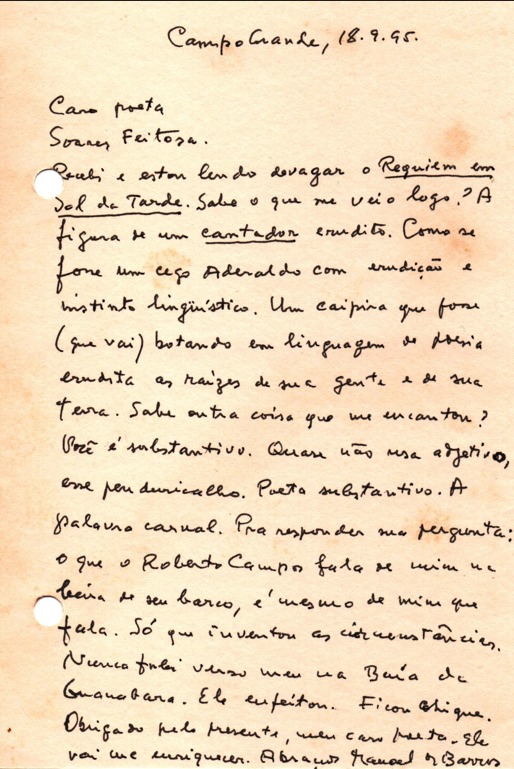 Campo Grande, 18.9.95.
Caro poeta
Soares Feitosa.
Recebi e estou lendo devagar o Requiem em
Sol da Tarde. Sabe o que me veio logo? A
figura de um cantador erudito. Como se
fosse um cego Aderaldo com erudição e
instinto lingüístico. Um caipira que fosse
(que vai) botando em linguagem de poesia
erudita as raízes de sua gente e de sua
terra. Sabe outra coisa que me encantou?
Você é substantivo. Quase não usa adjetivo,
esse penduricalho. Poeta substantivo. A
palavra carnal. Pra responder sua pergunta:
o que o Roberto Campos fala de mim na
beira de seu barco, é mesmo de mim que
fala. Só que inventou as circunstâncias.
Nunca falei verso meu na Baía da
Guanabara. Ele enfeitou. Ficou chique.
Obrigado pelo presente, meu caro poeta. Ele
vai me enriquecer. Abraços Manoel de Barros